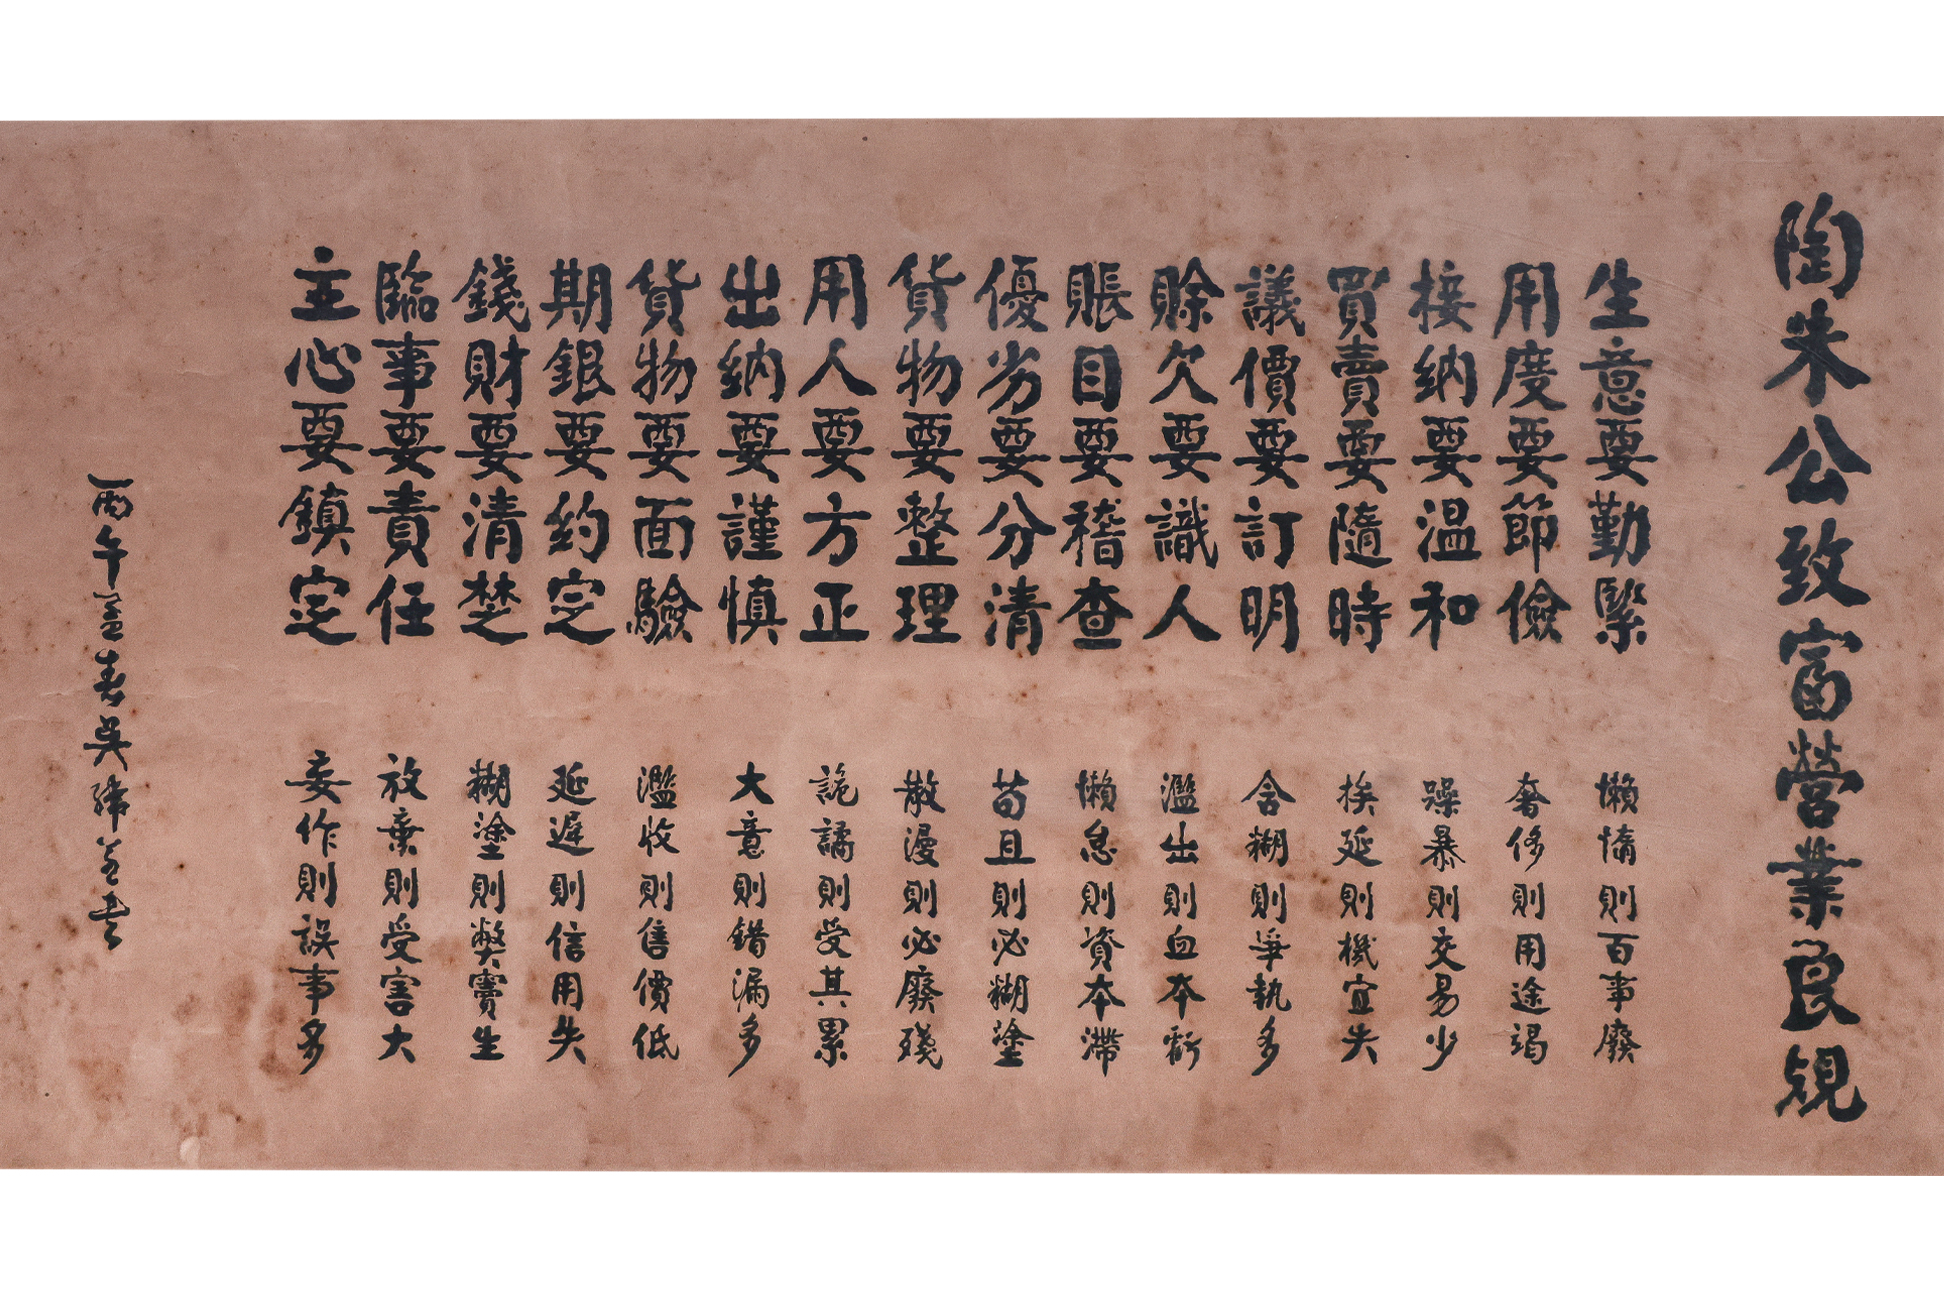 陶朱公致富營業良規
生意要勤緊 懶惰則百事廢
用度要節儉 奢侈則用途竭
接納要温和 躁暴則交易少
買賣要隨時 挨延則機宜失
議價要訂明 含糊則爭執多
賒欠要識人 濫出則血本虧
賬目要稽查 懶怠則資本滯
優劣要分清 苟且則必糊塗
貨物要整理 散漫則必廢殘
用人要方正 詭譎則受其累
出納要謹慎 大意則錯漏多
貨物要面驗 濫收則售價低
期銀要約定 延遲則信用失
錢財要清楚 糊塗則弊竇生
臨事要責任 放棄則受害大
主心要鎮定 妄作則誤事多
丙午孟春吳緯孟書